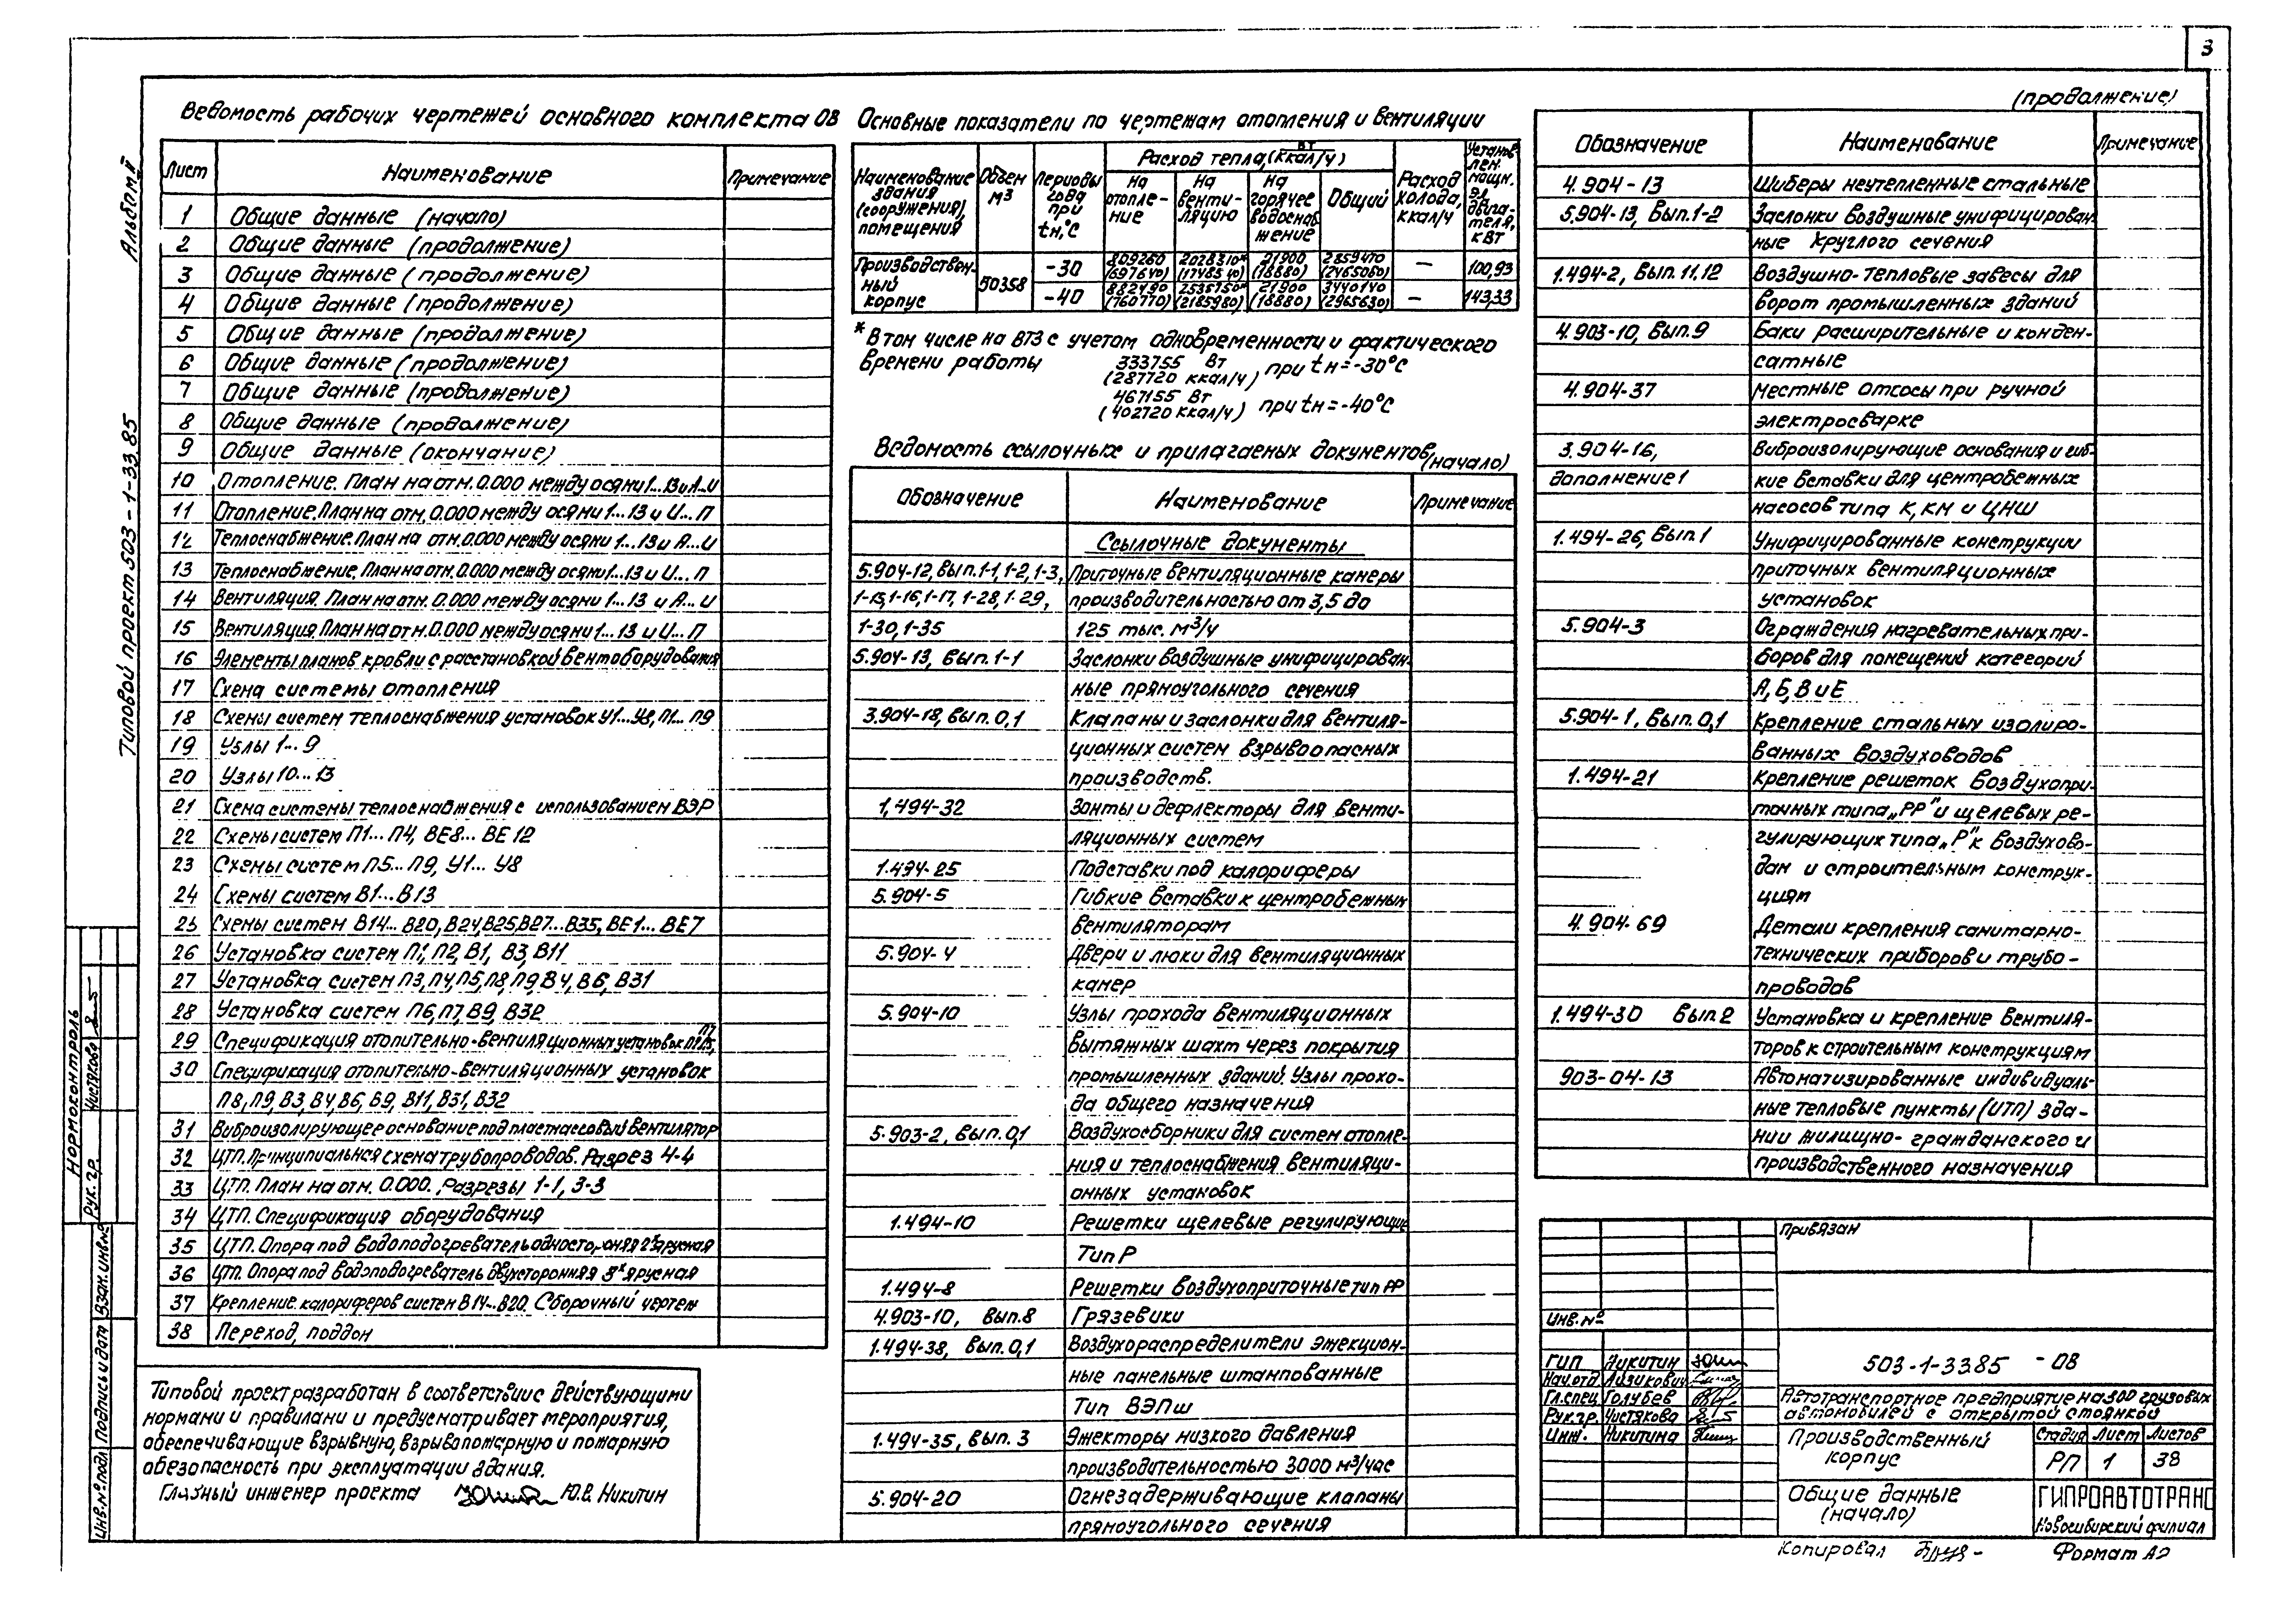 3
Альбом II
Типовой проект 503-1-33.85
Ведомость рабочих чертежей основного комплекта ОВ
Лист Наименование Примечание
1 Общие данные (начало)
2 Общие данные (продолжение)
3 Общие данные (продолжение)
4 Общие данные (продолжение)
5 Общие данные (продолжение)
6 Общие данные (продолжение)
7 Общие данные (продолжение)
8 Общие данные (продолжение)
9 Общие данные (окончание)
10 Отопление. План на отм. 0.000 между осями 1...13 и А...И
11 Отопление. План на отм. 0.000 между осями 1...13 и И...П
12 Теплоснабжение. План на отм. 0.000 между осями 1...13 и А...И
13 Теплоснабжение. План на отм. 0.000 между осями 1...13 и И...П
14 Вентиляция. План на отм. 0.000 между осями 1...13 и А...И
15 Вентиляция. План на отм. 0.000 между осями 1...13 и И...П
16 Элементы планов кровли с расстановкой вентоборудования
17 Схема системы отопления
18 Схемы систем теплоснабжения установок У1...У8, П1...П9
19 Узлы 1...9
20 Узлы 10...13
21 Схема системы теплоснабжения с использованием ВЭР
22 Схемы систем П1...П4, ВЕ8...ВЕ12
23 Схемы систем П5...П9, У1...У8
24 Схемы систем В1...В13
25 Схемы систем В14...В20, В24, В25, В27...В35, ВЕ1...ВЕ7
26 Установка систем П1, П2, В1, В3, В11
27 Установка систем П3, П4, П5, П8, П9, В4, В6, В31
28 Установка систем П6, П7, В9, В32
29 Спецификация отопительно-вентиляционных установок
30 Спецификация отопительно-вентиляционных установок
П8, П9, В3, В4, В6, В9, В11, В31, В32
31 Виброизолирующее основание под пластмассовый вентилятор
32 ЦТП. Принципиальная схема трубопроводов. Разрез 4-4
33 ЦТП. План на отм. 0.000. Разрезы 1-1, 3-3
34 ЦТП. Спецификация оборудования
35 ЦТП. Опора под водоподогреватель односторонняя 2х ярусная
36 ЦТП. Опора под водоподогреватель двухсторонняя 3х ярусная
37 Крепление калориферов систем В14...В20. Сборочный чертеж
38 Переход, поддон
Типовой проект разработан в соответствие действующими
нормами и правилами и предусматривает мероприятия,
обеспечивающие взрывную, взрывопожарную и пожарную
обезопасность при эксплуатации здания.
Главный инженер проекта Ю.В. Никитин
Основные показатели по чертежам отопления и вентиляции
Наименование здания (сооружения), помещения
Объем м3
Периоды года при tн, °С
Расход тепла, Вт (ккал/ч)
На отопление
На вентиляцию
На горячее водоснабжение
Общий
Расход холода, ккал/ч
Установлен. мощн. эл. двигателя, кВт
Производственный корпус 50358
-30 809260 (697640) 2028310* (1748540) 21900 (18880) 2859470 (2465060) — 100,93
-40 882490 (760770) 2535750* (2185980) 21900 (18880) 3440140 (2965630) — 143,33
* В том числе на ВТЗ с учетом одновременности и фактического
времени работы 333755 Вт (287720 ккал/ч) при tн = -30°С
467155 Вт (402720 ккал/ч) при tн = -40°С
Ведомость ссылочных и прилагаемых документов (начало)
Обозначение Наименование Примечание
Ссылочные документы
5.904-12, вып. 1-1, 1-2, 1-3, Приточные вентиляционные камеры
1-15, 1-16, 1-17, 1-28, 1-29, производительностью от 3,5 до
1-30, 1-35 125 тыс. м3/ч
5.904-13, вып. 1-1 Заслонки воздушные унифицирован-
ные прямоугольного сечения
3.904-18, вып. 0,1 Клапаны и заслонки для вентиля-
ционных систем взрывоопасных
производств.
1.494-32 Зонты и дефлекторы для венти-
ляционных систем
1.494-25 Подставки под калориферы
5.904-5 Гибкие вставки к центробежным
вентиляторам
5.904-4 Двери и люки для вентиляционных
камер
5.904-10 Узлы прохода вентиляционных
вытяжных шахт через покрытия
промышленных зданий. Узлы прохо-
да общего назначения
5.903-2, вып. 0,1 Воздухосборники для систем отопле-
ния и теплоснабжения вентиляци-
онных установок
1.494-10 Решетки щелевые регулирующие
Тип Р
1.494-8 Решетки воздухоприточные тип РР
4.903-10, вып. 8 Грязевики
1.494-38, вып. 0,1 Воздухораспределители эжекцион-
ные панельные штампованные
Тип ВЭПш
1.494-35, вып. 3 Эжекторы низкого давления
производительностью 3000 м3/час
5.904-20 Огнезадерживающие клапаны
прямоугольного сечения
(продолжение)
Обозначение Наименование Примечание
4.904-13 Шиберы неутепленные стальные
5.904-13, вып. 1-2 Заслонки воздушные унифицирован-
ные круглого сечения
1.494-2, вып. 11.12 Воздушно-тепловые завесы для
ворот промышленных зданий
4.903-10, вып. 9 Баки расширительные и конден-
сатные
4.904-37 Местные отсосы при ручной
электросварке
3.904-16, Виброизолирующие основания и гиб-
дополнение 1 кие вставки для центробежных
насосов типа К, КМ и ЦНШ
1.494-26, вып. 1 Унифицированные конструкции
приточных вентиляционных
установок
5.904-3 Ограждения нагревательных при-
боров для помещений категорий
А, Б, В и Е
5.904-1, вып. 0,1 Крепление стальных изолиро-
ванных воздуховодов
1.494-21 Крепление решеток воздухопри-
точных типа „РР" и щелевых ре-
гулирующих типа „Р" к воздухово-
дам и строительным конструк-
циям
4.904-69 Детали крепления санитарно-
технических приборов и трубо-
проводов
1.494-30 вып. 2 Установка и крепление вентиля-
торов к строительным конструкциям
903-04-13 Автоматизированные индивидуаль-
ные тепловые пункты (ИТП) зда-
нии жилищно-гражданского и
производственного назначения
Привязан
Инв. №
ГИП Никитин
Нач. отд. Лизикович
Гл. спец. Голубев
Рук. гр. Чистякова
Инж. Никитина
503-1-33.85 -ОВ
Автотранспортное предприятие на 300 грузовых
автомобилей с открытой стоянкой
Производственный
корпус
Стадия Лист Листов
РП 1 38
Общие данные
(начало)
ГИПРОАВТОТРАНС
Новосибирский филиал
Копировал
Формат А2
Нормоконтроль
Рук. гр. Чистякова
Инв. № подл. Подпись и дата Взам. инв. №